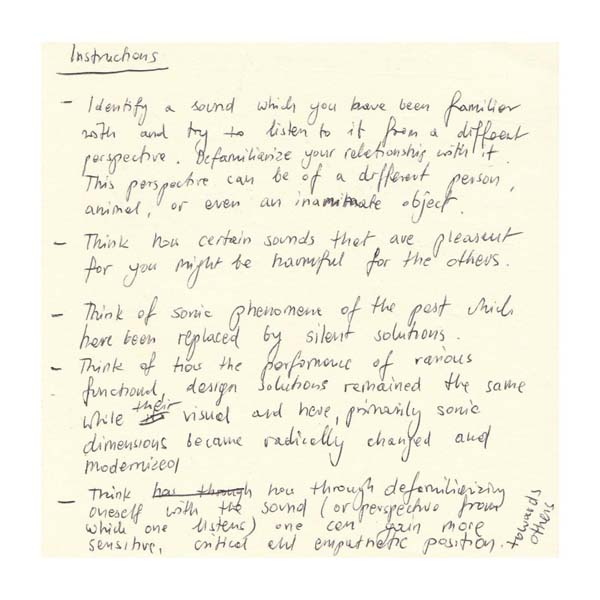 Instructions
- Identify a sound which you have been familier
with and try to listen to it from a different
perspective. Defamiliarize your relationship with it.
This perspective can be of a different person,
animal, or even an inanimate object.
- Think how certain sounds that are pleasent
for you might be harmful for the others.
- Think of sonic phenomena of the past which
have been replaced by silent solutions.
- Think of how the performance of various
functional design solutions remained the same
while their visual and here, primarily sonic
dimensions became radically changed and
modernized
- Think how through defamiliarizing
oneself with the sound (or perspective from
which one listens) one can gain more
sensitive, critical and empathetic position.
towards
others